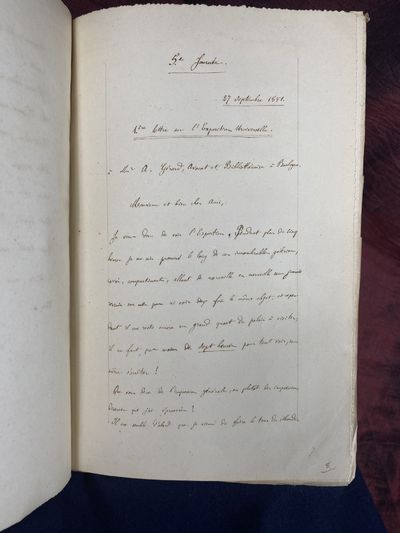 5.e Journée.
27 septembre 1851.
1ère lettre sur l'Exposition Universelle.
à Mr A. Gérard, Avocat et Bibliothécaire à Boulogne.
Monsieur et bien cher Ami,
Je viens donc de voir l'Exposition. Pendant plus de cinq
heures je me suis promené le long de ses innombrables galeries,
allant de merveille en merveille sans jamais
voir deux fois le même objet; et cependant
il me reste encore un grand quart du palais à visiter;
il me faut, sept heures pour tout voir, sans
même s'arrêter!
Que vous dire de l'impression générale, ou plutôt des impressions
diverses que j'ai éprouvées?
Il me semble d'abord que je viens de faire le tour du Monde